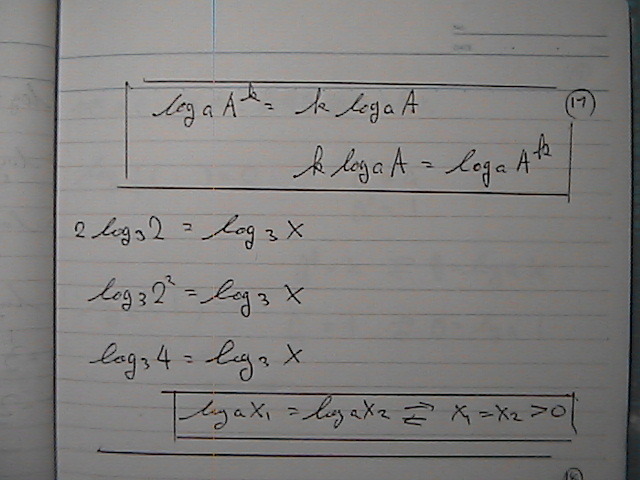 logₐAᵏ = k logₐA
(17)
k logₐA = logₐAᵏ
2 log₃2 = log₃X
log₃2² = log₃X
log₃4 = log₃X
logₐX₁ = logₐX₂ ⇄ X₁ = X₂ > 0